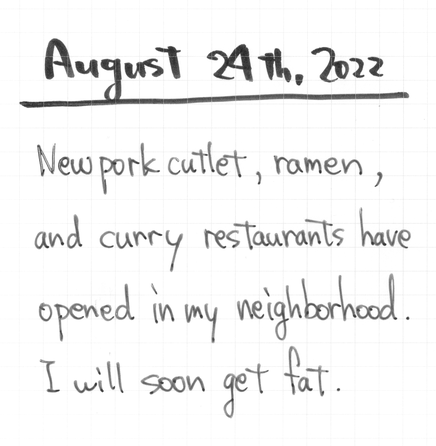 August 24th, 2022
New pork cutlet, ramen,
and curry restaurants have
opened in my neighborhood.
I will soon get fat.